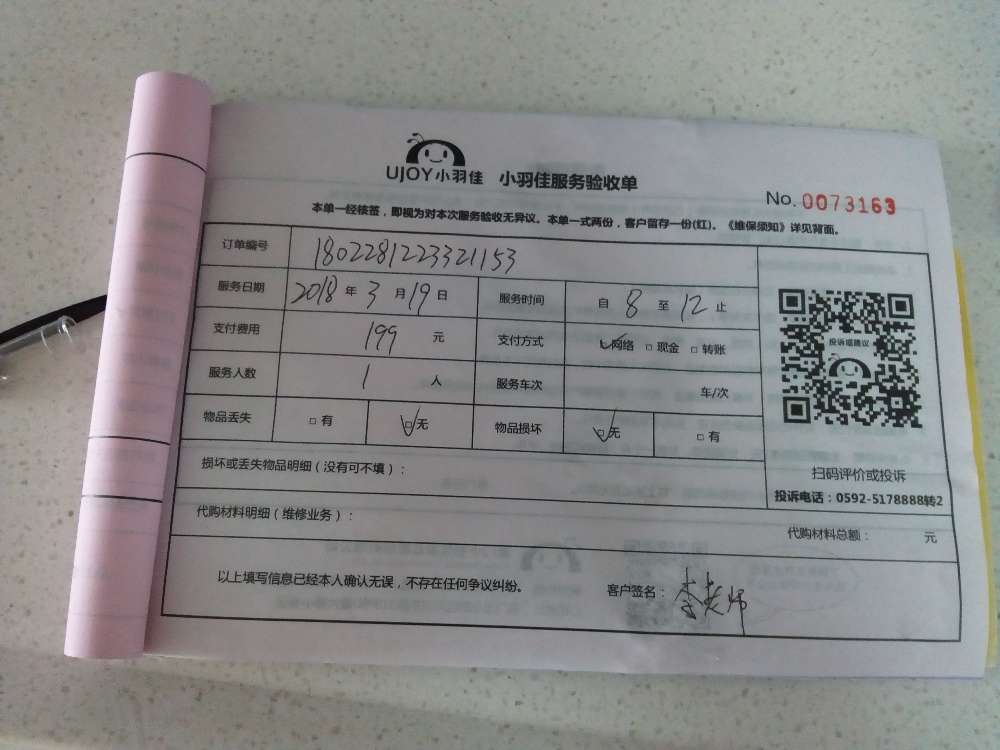 UJOY小羽佳 小羽佳服务验收单
No. 0073163
本单一经核签，即视为对本次服务验收无异议。本单一式两份，客户留存一份(红)。《维保须知》详见背面。
订单编号 1802281223321153
服务日期 2018年3月19日 服务时间 自8至12止
支付费用 199元 支付方式 ☑网络 □现金 □转账
服务人数 1人 服务车次 车/次
物品丢失 □有 ☑无 物品损坏 ☑无 □有
投诉或建议
扫码评价或投诉
投诉电话：0592-5178888转2
损坏或丢失物品明细（没有可不填）：
代购材料明细（维修业务）： 代购材料总额： 元
以上填写信息已经本人确认无误，不存在任何争议纠纷。 客户签名：李老师